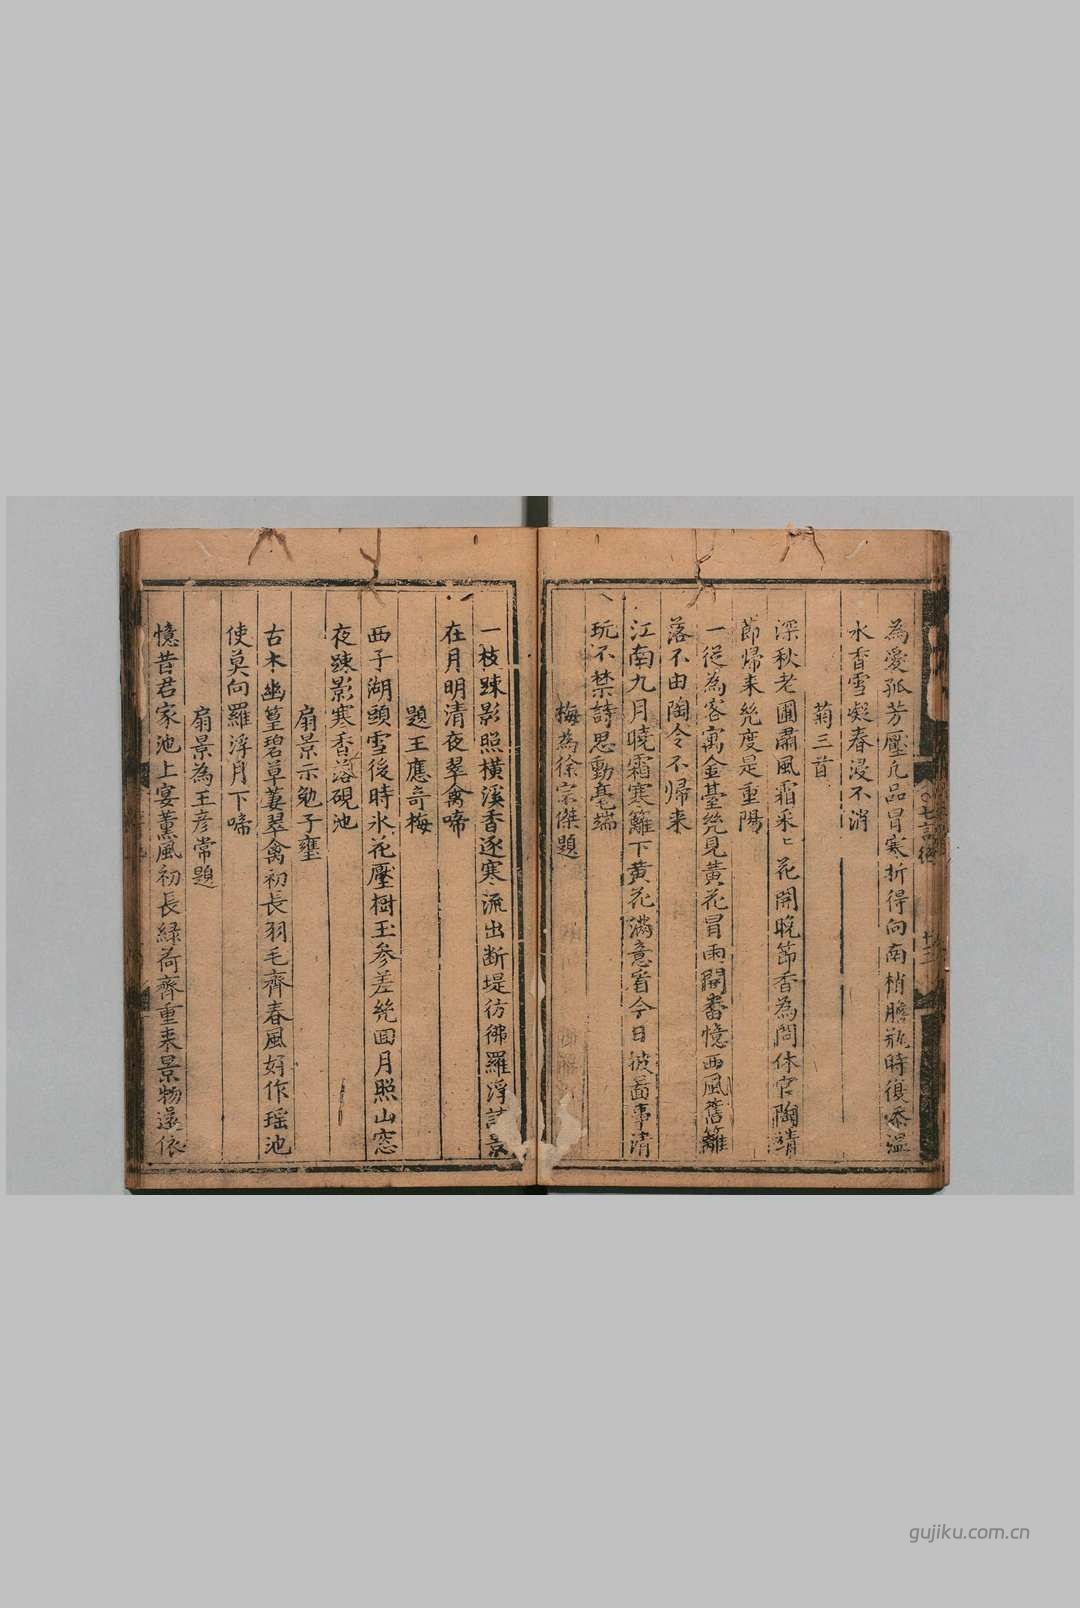 為愛孤芳壓凡品冒寒折得向南梢膽瓶時復添溫
水香雪凝春浸不消
菊三首
深秋老圃肅風霜采〻花開晚節香為問休官陶靖
節歸来㡬度是重陽
一從為客寓金臺㡬見黃花冒雨開畨憶西風舊籬
落不由陶令不歸来
江南九月曉霜寒籬下黄花滿意看今日披啚事清
玩不禁詩思動毫端
梅為徐宗傑題
一枝踈影照橫溪香逐寒流出断堤彷彿羅浮詩景
在月明清夜翠禽啼
題王應奇梅
西子湖頭雪後時氷花壓樹玉參差㡬囬月照山窓
夜踈影寒香落硯池
扇景示勉子壅
古木幽篁碧草萋翠禽初長羽毛齊春風好作瑶池
使莫向羅浮月下啼
扇景為王彦常題
憶昔君家池上宴薰風初長緑荷齊重来景物還依
gujiku.com.cn